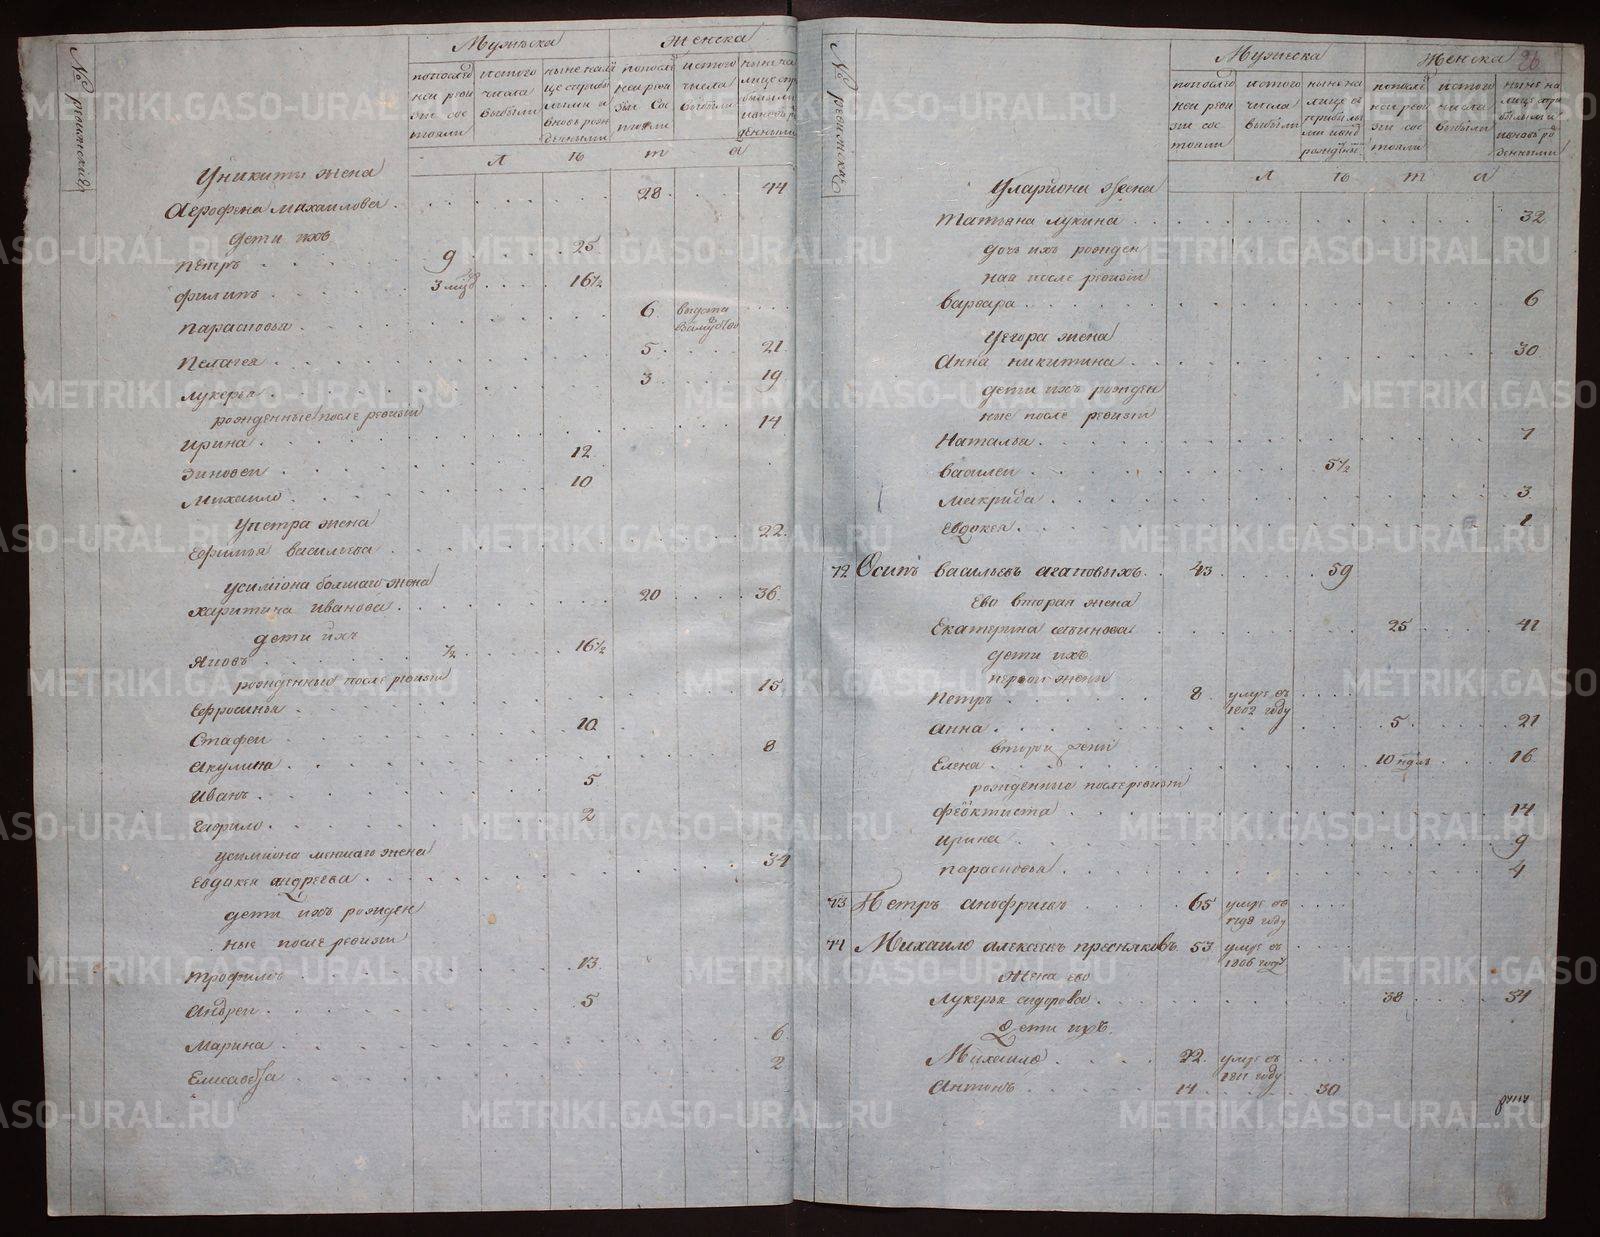 № ревижской
Мужеска
Женска
по последней ревизии состояли
из того числа выбыли
ныне на лице с прибылыми и вновь рожденными
по последней ревизии состояли
из того числа выбыли
ныне на лице с прибылыми и вновь рожденными
л ѣ т а
У никиты жена
Агрофена михаилова 28 44
дети ихъ
Петръ 9 25
филипъ 3 16½
парасковья 6 выдата
Пелагея 5 21
лукерья 3 19
рожденные после ревизiи
ирина 14
Зиновеи 12
михаило 10
У петра жена
Ефимья васильева 22
У симiона болшаго жена
харитина иванова 20 36
дети ихъ
яковъ ½ 16½
рожденные после ревизiи
Ефросинья 15
Стафеи 10
акулина 8
иванъ 5
гаврило 2
У симiона меншаго жена
Евдокея андреева 34
дети ихъ рожден
ные после ревизiи
трофимъ 13
андреи 5
марина 6
Елисавефа 2
№ ревижской
Мужеска
Женска
26
по последней ревизии состояли
из того числа выбыли
ныне на лице с прибылыми и вновь рожденные
по последней ревизии состояли
из того числа выбыли
ныне на лице с прибылыми и вновь рожденными
л ѣ т а
У ларiона жена
татьяна лукина 32
дочь ихъ рожден
ная после ревизiи
варвара 6
У егора жена
анна никитина 30
дети ихъ рожден
ные после ревизiи
наталья 7
василеи 5½
макрида 3
Евдокея 1
72 Осипъ васильевъ агаповыхъ 43 59
Ево вторая жена
Екатерина савинова 25 41
дети ихъ
первой жены
петръ 8 умре въ 1802 году
анна 5 21
второй жены
Елена 10 нд 16
рожденные после ревизiи
феоктиста 14
ирина 9
парасковья 4
73 Петръ анофриевъ 65 умре въ 1798 году
74 Михаило алексеевъ пресняковъ 53 умре въ 1806 году
Жена ево
лукерья сидорова 38 54
Дети ихъ
Михаило 22 умре въ 1811 году
антонъ 14 30